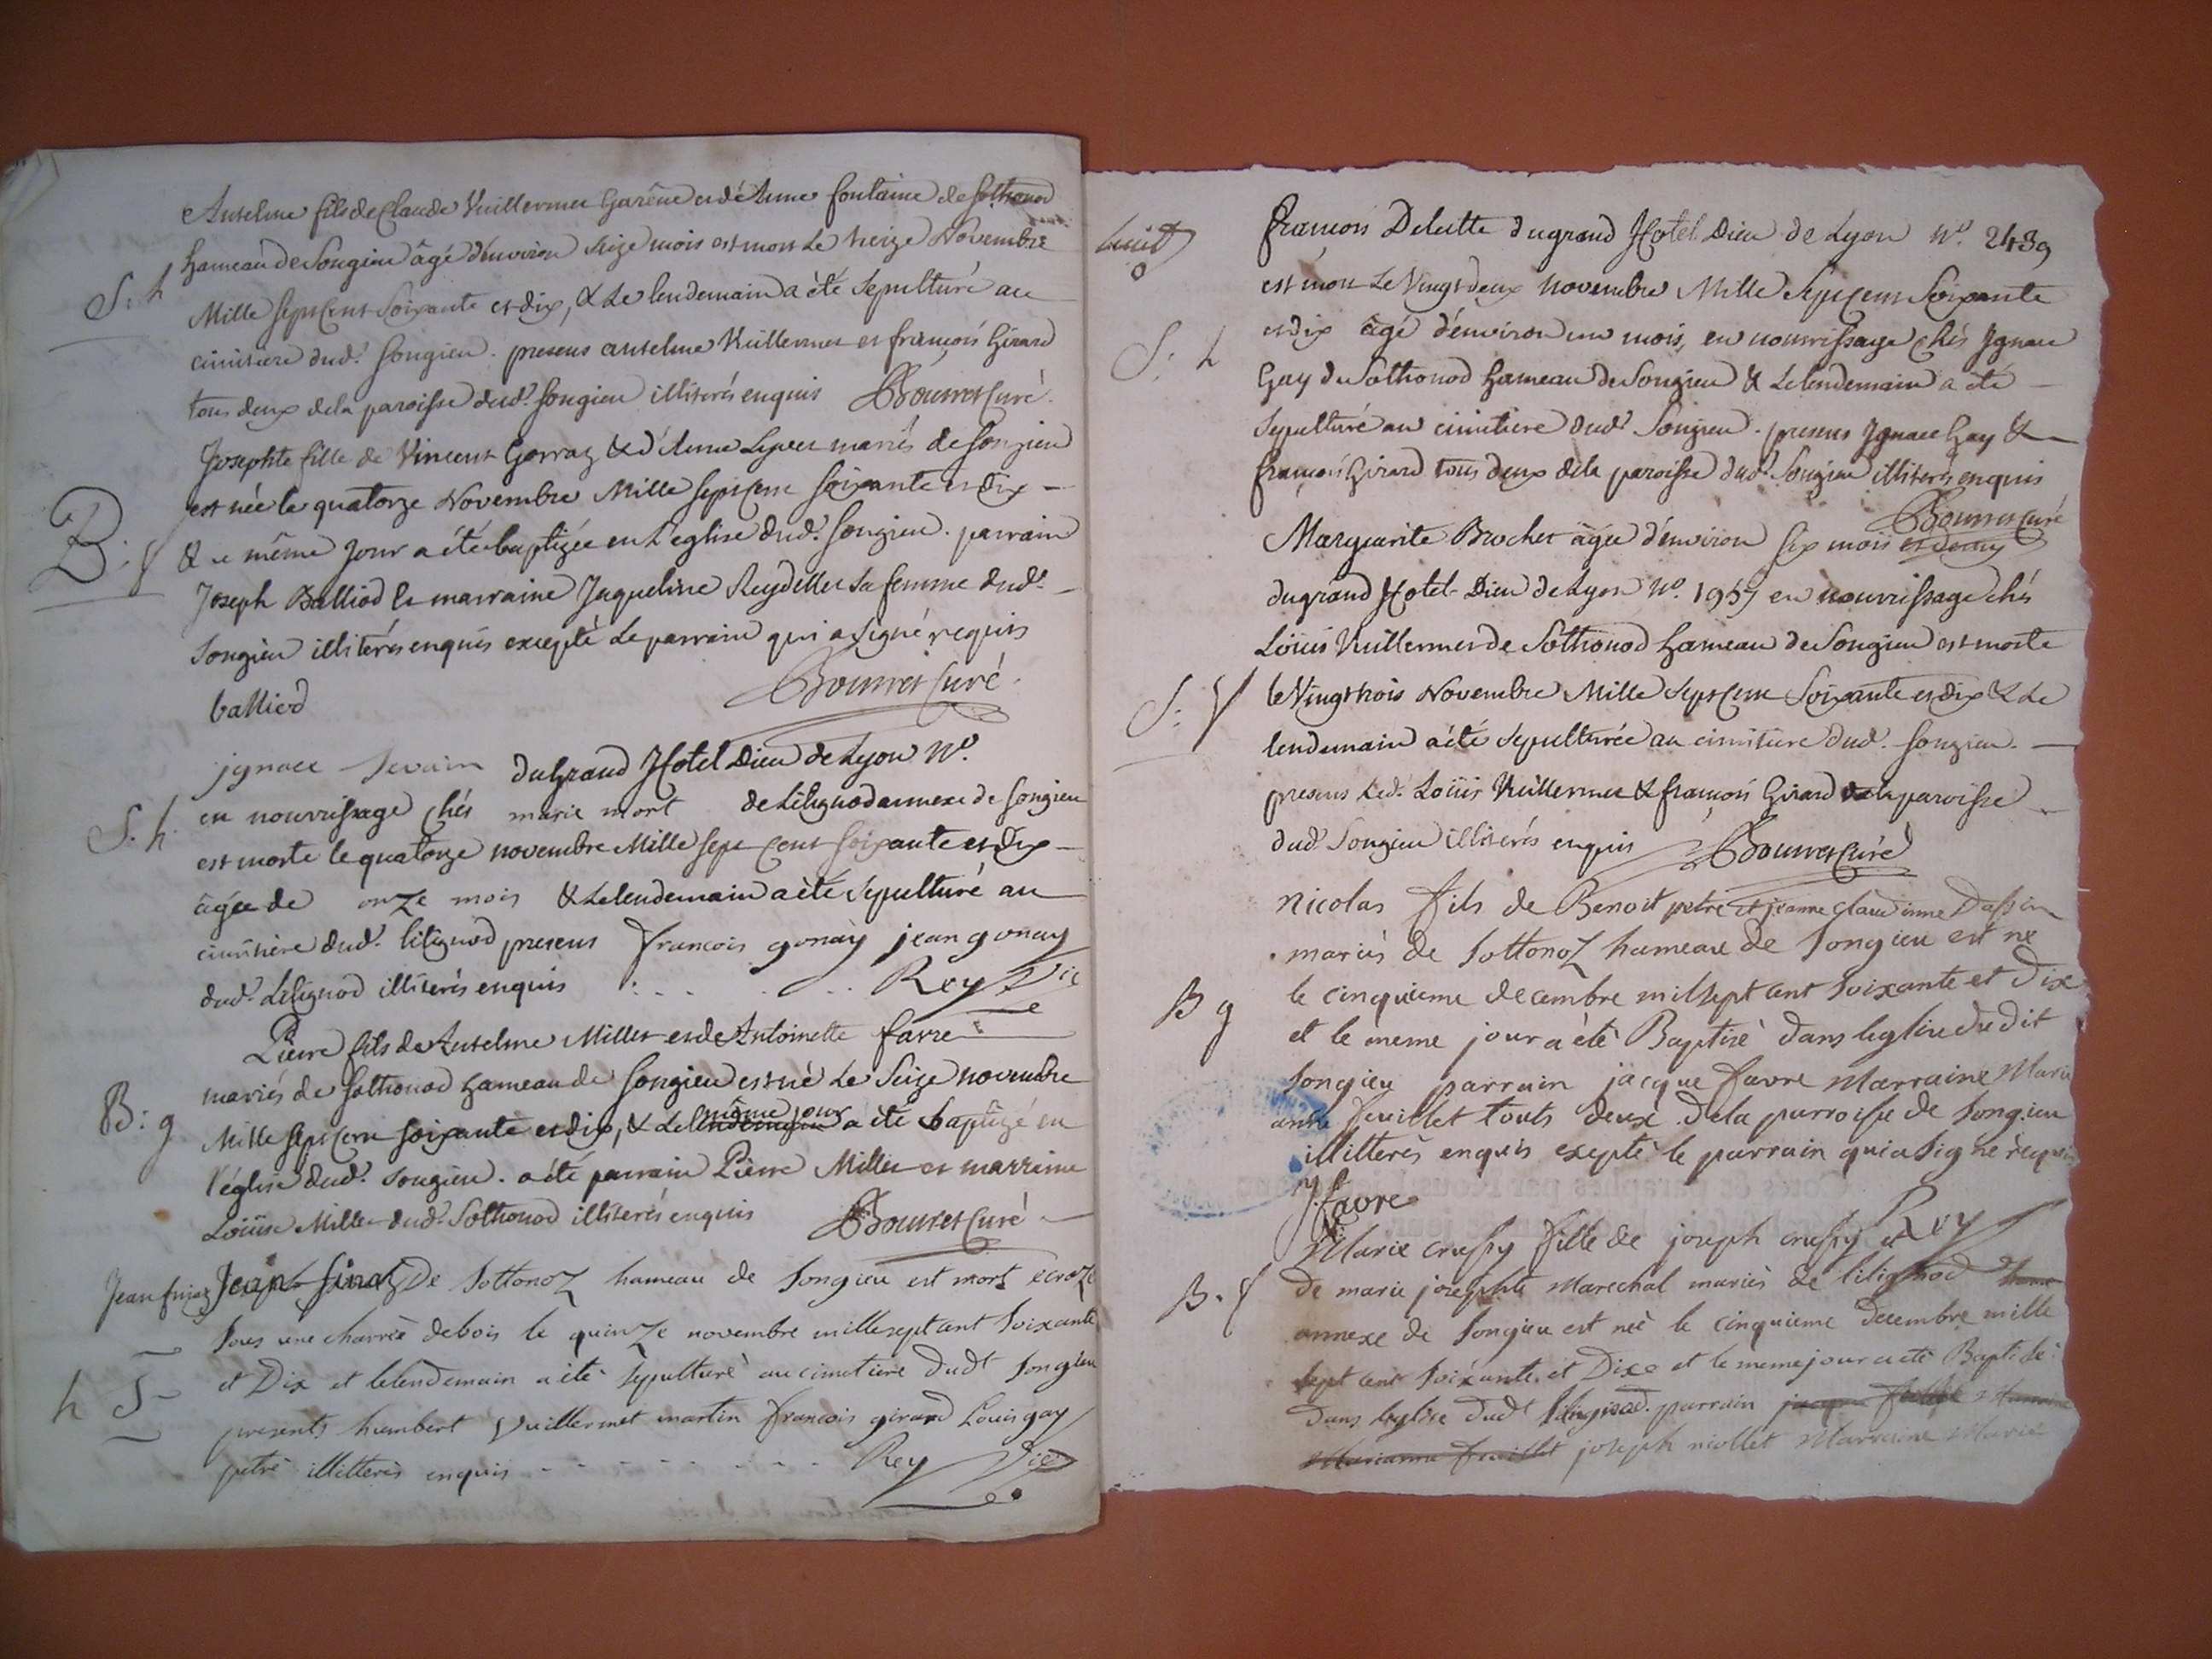 Anselme fils de Claude Vuillermet Garêne et d'Anne fontaine de Sothonod
hameau de Songieu âgé d'environ seize mois est mort le treize Novembre
S: h
Mille sept Cent Soixante et dix, & le lendemain a été sepulturé au
cimitiere dud.t Songieu. presens anselme Vuillermet et françois Girard
tous deux de la paroisse dud.t Songieu illiterés enquis Bouvret Curé.
Josephte fille de Vincent Gorraz & d'Anne mariés de Songieu
est née le quatorze Novembre Mille sept Cent soixante et dix –
B: f
& ce même jour a été baptizée en l'eglise dud.t Songieu. parrain
Joseph Balliod et marraine Jaqueline Reydellet sa femme dud.t –
Songieu illiterés enquis excepté le parrain qui a signé requis
balliod Bouvret Curé.
jgnace du Grand Hotel Dieu de Lyon N.o
S. h.
en nourrissage chés marie mort de Lilignod annexe de Songieu
est morte le quatorze novembre Mille sept Cent soixante et dix –
âgée de onze mois & le lendemain a été sepulturé au
cimitière dud.t lilignod presens francois gonay jean gonay
dud.t Lilignod illiterés enquis Rey Vic
Pierre fils de Anselme Millet et de Antoinette favre
mariés de Sothonod hameau de Songieu est né le Seize novembre
même jour
B: g
Mille sept Cent soixante et dix, & le lendemain a été baptizé en
l'église dud.t Songieu. a été parrain Pierre Millet et marraine
Loüise Millet dud.t Sothonod illiterés enquis Bouvret Curé –
Jean finaz Jean finaz De Sottonoz hameau de Songieu est mort ecrazé
sous une charrée de bois le quinze novembre mille sept cent soixante
et Dix et le lendemain a été sepulturé au cimetiere dudt Songieu
h S
presents humbert Vuillermet martin francois girard Louis gay
petre illitterés enquis Rey Vic
françois Delatte du grand Hotel Dieu de Lyon N.o 2439
est mort le Vingt deux novembre Mille Sept Cent Soixante
S: h
et dix âgé d'environ un mois, en nourrissage chés Jgnace
Gay de Sothonod hameau de Songieu & le lendemain a été –
sepulturé au cimitiere dud.t Songieu. presens Jgnace Gay &
françois Girard tous deux de la paroisse dud.t Songieu illiterés enquis
Bouvret Curé
Marguerite Brochet âgée d'environ six mois et demy
du grand Hotel-Dieu de Lyon N.o 1957 en nourrissage chés
Loüis Vuillermet de Sothonod hameau de Songieu est morte
S: f
le Vingt trois Novembre Mille Sept Cent Soixante et dix & le
lendemain a été sepulturée au cimitiere dud.t Songieu. –
presens led.t Loüis Vuillermet & françois Girard de la paroisse
dud.t Songieu illiterés enquis Bouvret Curé
nicolas fils de Benoit petre et jeanne claudinne Dassin
mariés de Sottonoz hameau de Songieu est né
B g
le cinquieme decembre mil sept cent soixante et Dix
et le meme jour a été Baptisé dans leglise du dit
Songieu parrain jacque favre Marraine Marie
anne feuillet touts deux de la parroisse de Songieu
illitterés enquis expté le parrain qui a signé requis
J favre
Rey
Marie crussy fille de joseph crussy et
B. f
De marie josephte Marechal mariés de lilignod
annexe de Songieu est née le cinquieme Decembre mille
sept cent soixante et Dixe et le meme jour a eté Baptisée
Dans leglise dudt lilignod. parrain jacque
Marianne feuillet joseph niollet Marraine Marie